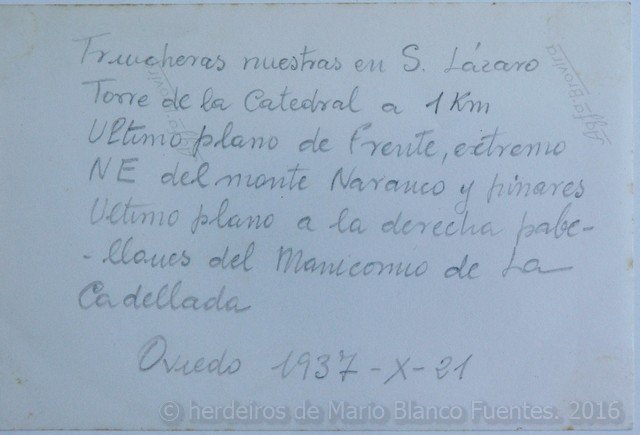 Trincheras nuestras en S. Lázaro
Torre de la Catedral a 1 Km
Ultimo plano de frente, extremo
NE del monte Naranco y pinares
Ultimo plano a la derecha pabe-
-llones del Manicomio de La
Cadellada
Oviedo 1937-X-21
© herdeiros de Mario Blanco Fuentes. 2016